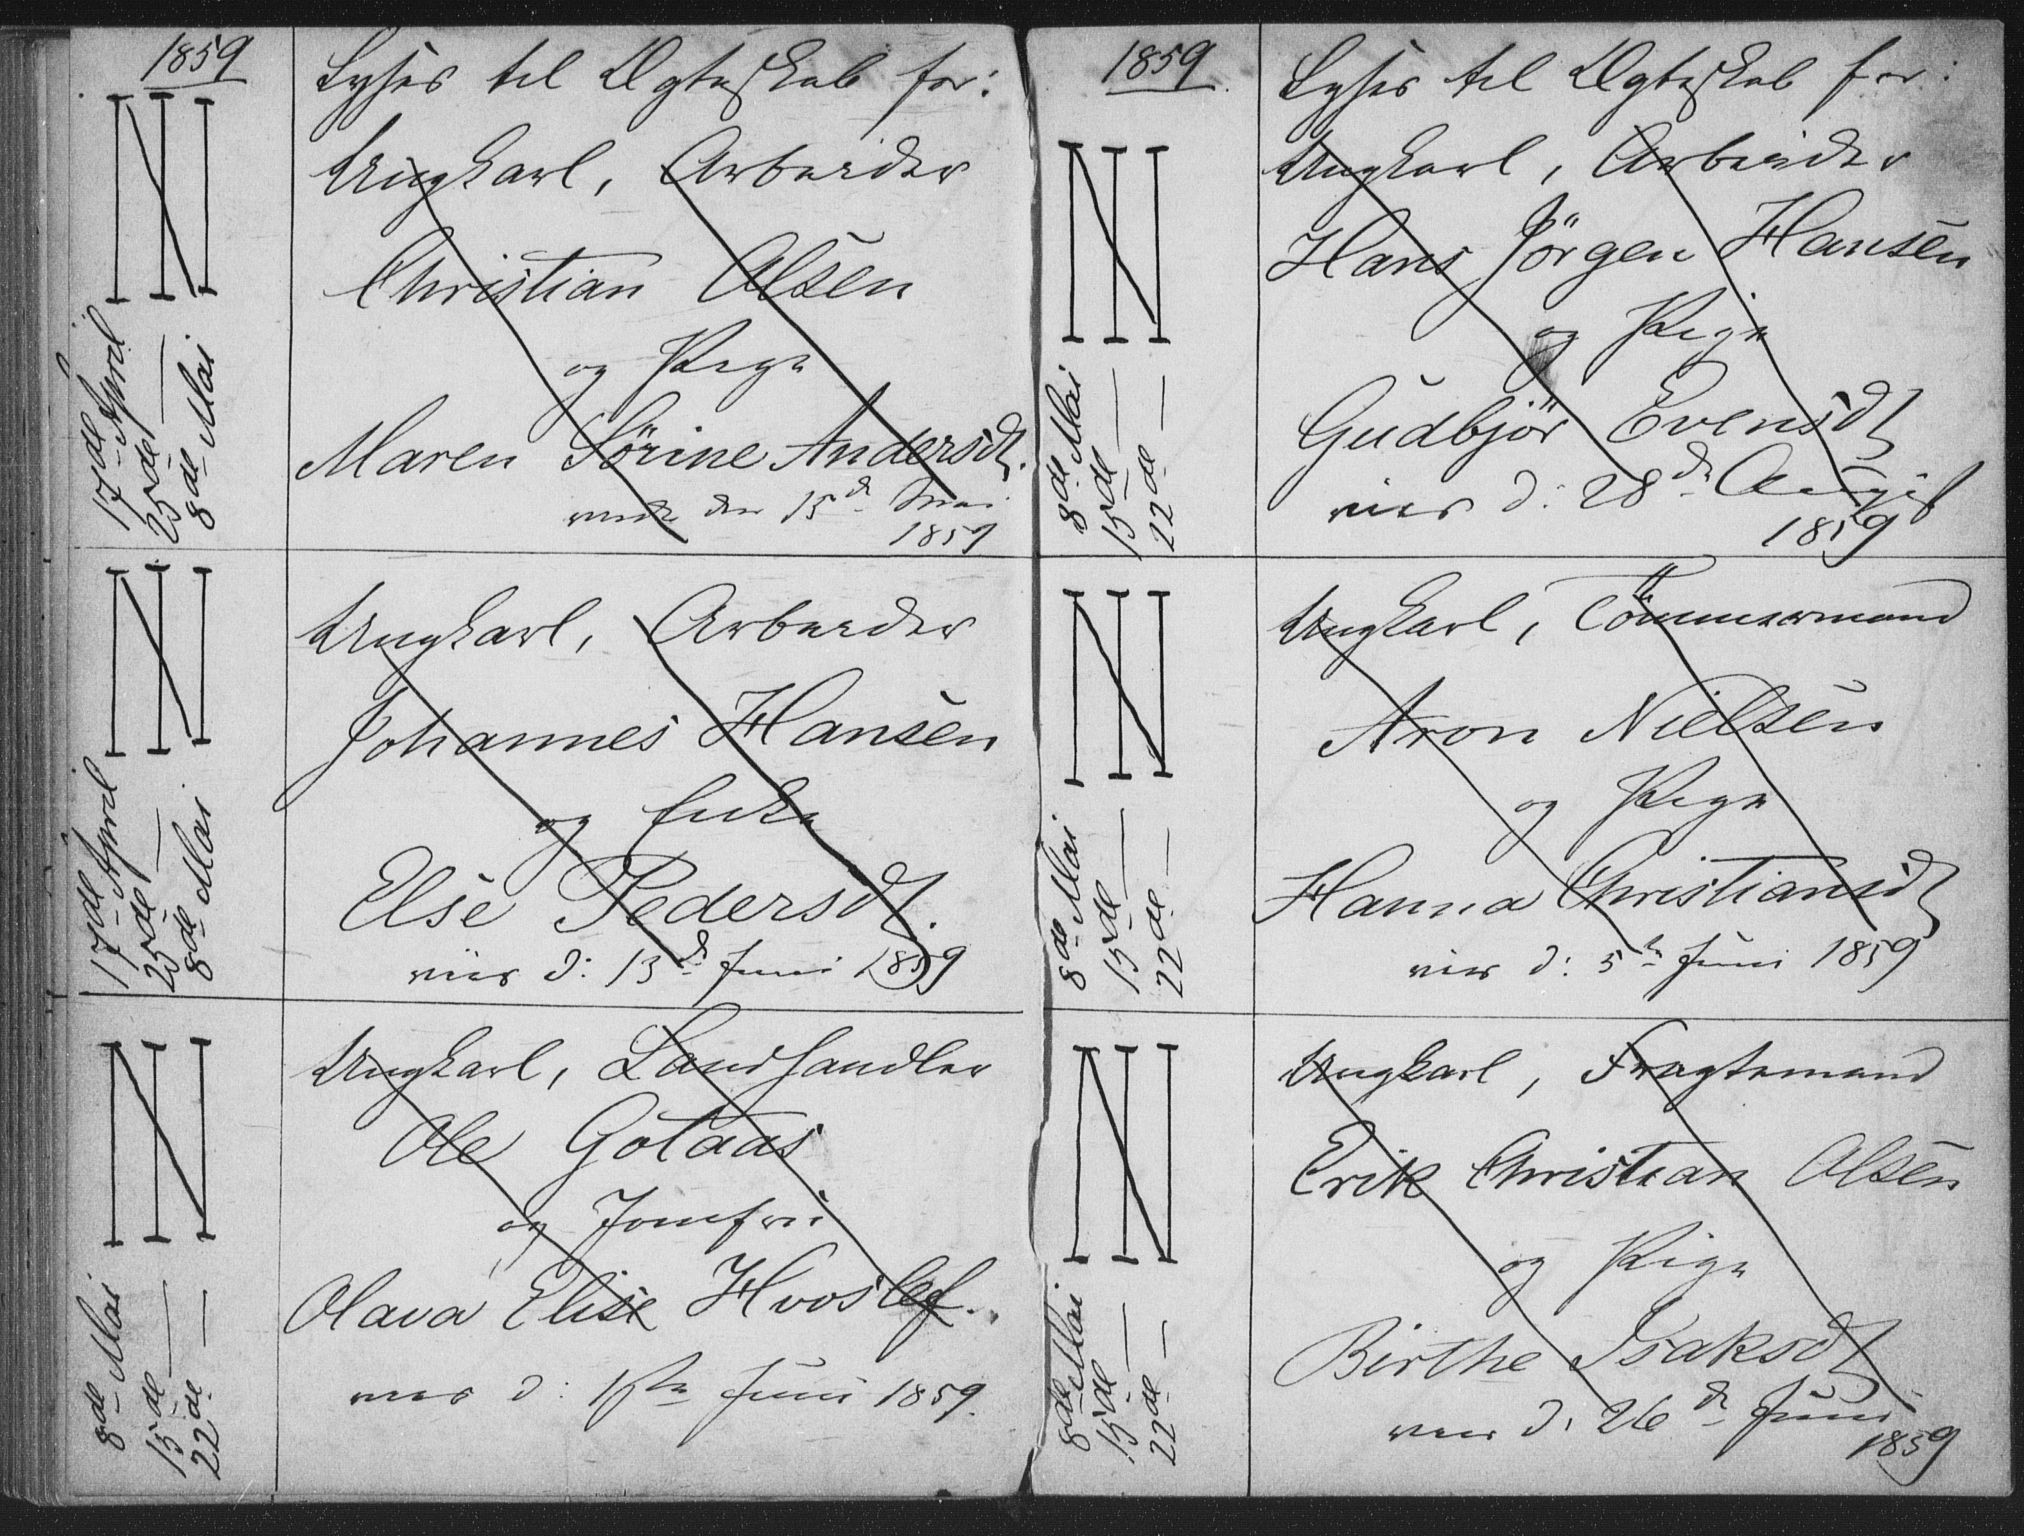 1859
Lyses til Ægteskab for:
Ungkarl, Arbeider
Christian Olsen
og Pige
Maren Sörine Andersdt.
den 15de Mai
1859
17de April
25de —
8de Mai
Ungkarl, Arbeider
Johannes Hansen
og Enke
Else Pedersdt.
viet d: 13de Juni 1859
17de April
25de —
8de Mai
Ungkarl, Landhandler
Ole Götaas
og Jomfru
Olava Elise Hvoslef.
viet d: Juni 1859.
8de Mai
15de —
22de —
1859
Lyses til Ægteskab for:
Ungkarl, Arbeider
Hans Jörgen Hansen
og Pige
Gudbjör Evensdt
viet d: 28de August
1859
8de Mai
15de —
22de —
Ungkarl, Tömmermand
Aron Nielsen
og Pige
Hanna Christiansdt
viet d: 5te Juni 1859
8de Mai
15de —
22de —
Ungkarl, Fragtemand
Erik Christian Olsen
og Pige
Birthe Isaksdt
viet d. 26de Juni
1859
8de Mai
15de —
22de —